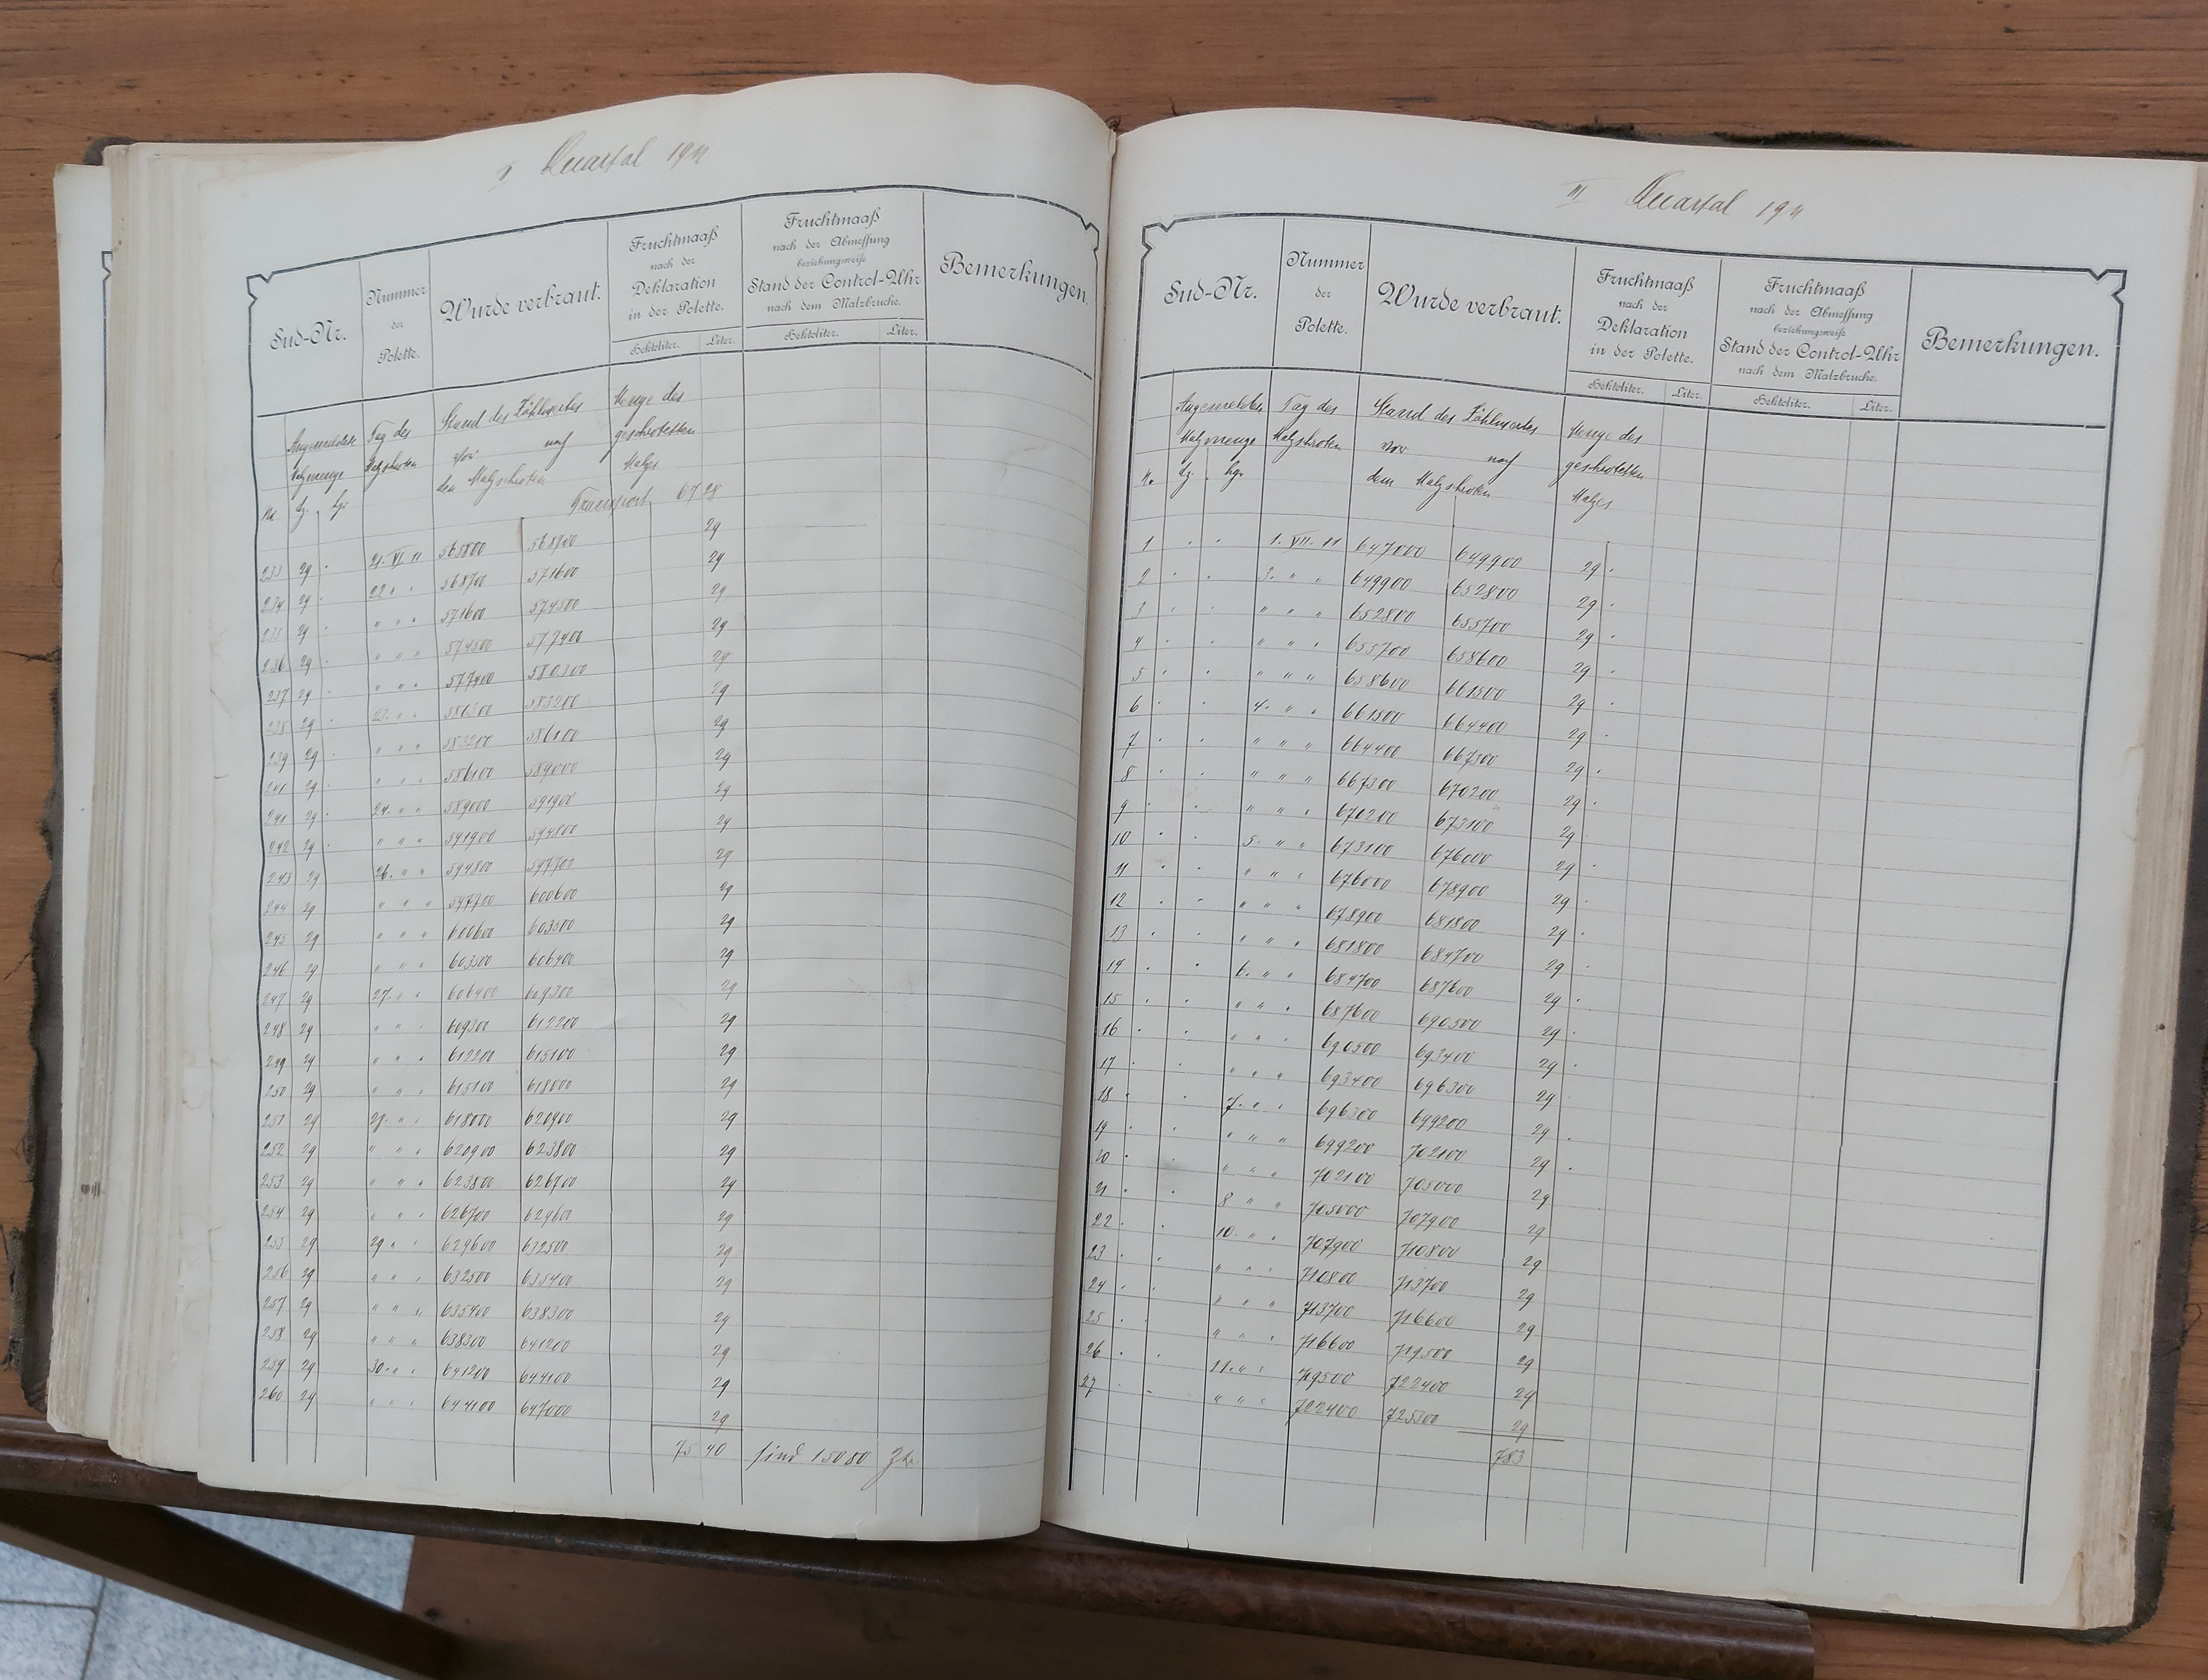 II Quartal 1911
Sud-Nr.
Nummer der Polette.
Wurde verbraut.
Fruchtmaaß nach der Deklaration in der Polette.
Hektoliter. Liter.
Fruchtmaaß nach der Abmessung beziehungsweise Stand der Control-Uhr nach dem Malzbruche.
Hektoliter. Liter.
Bemerkungen.
Angemeldete Malzmenge
Tag des Malzschroten
Stand des Zählwerkes
vor nach
den Malzschroten
Menge des geschroteten Malzes
No dz. kg.
Transport 67 28
233 29 · 21. VI 11 565800 568700 29
234 29 · 22 " " 568700 571600 29
235 29 · " " " 571600 574500 29
236 29 · " " " 574500 577400 29
237 29 · " " " 577400 580300 29
238 29 · 23. " " 580300 583200 29
239 29 · " " " 583200 586100 29
240 29 · " " " 586100 589000 29
241 29 · 24. " " 589000 591900 29
242 29 · " " " 591900 594800 29
243 29 26. " " 594800 597700 29
244 29 " " " 597700 600600 29
245 29 " " " 600600 603500 29
246 29 " " " 603500 606400 29
247 29 27. " " 606400 609300 29
248 29 " " " 609300 612200 29
249 29 " " " 612200 615100 29
250 29 " " " 615100 618000 29
251 29 28. " " 618000 620900 29
252 29 " " " 620900 623800 29
253 29 " " " 623800 626700 29
254 29 " " " 626700 629600 29
255 29 29 " " 629600 632500 29
256 29 " " " 632500 635400 29
257 29 " " " 635400 638300 29
258 29 " " " 638300 641200 29
259 29 30. " " 641200 644100 29
260 29 " " " 644100 647000 29
75 40 sind 15080 Ztr.
III Quartal 1911
Sud-Nr.
Nummer der Polette.
Wurde verbraut.
Fruchtmaaß nach der Deklaration in der Polette.
Hektoliter. Liter.
Fruchtmaaß nach der Abmessung beziehungsweise Stand der Control-Uhr nach dem Malzbruche.
Hektoliter. Liter.
Bemerkungen.
Angemeldete Malzmenge
Tag des Malzschroten
Stand des Zählwerkes
vor nach
dem Malzschroten
Menge des geschroteten Malzes
No dz. kg.
1 · · 1. VII. 11 647000 649900 29 ·
2 · · 3. " " 649900 652800 29 ·
3 · · " " " 652800 655700 29 ·
4 · · " " " 655700 658600 29 ·
5 · · " " " 658600 661500 29 ·
6 · · 4. " " 661500 664400 29 ·
7 · · " " " 664400 667300 29 ·
8 · · " " " 667300 670200 29 ·
9 · · " " " 670200 673100 29 ·
10 · · 5. " " 673100 676000 29 ·
11 · · " " " 676000 678900 29 ·
12 · · " " " 678900 681800 29 ·
13 · · " " " 681800 684700 29 ·
14 · · 6. " " 684700 687600 29 ·
15 · · " " " 687600 690500 29 ·
16 · · " " " 690500 693400 29 ·
17 · · " " " 693400 696300 29 ·
18 · · 7. " " 696300 699200 29 ·
19 · · " " " 699200 702100 29 ·
20 · · " " " 702100 705000 29
21 · · 8 " " 705000 707900 29
22 · · 10. " " 707900 710800 29
23 · · " " " 710800 713700 29
24 · · " " " 713700 716600 29
25 · · " " " 716600 719500 29
26 · · 11. " " 719500 722400 29
27 · · " " " 722400 725300 29
783